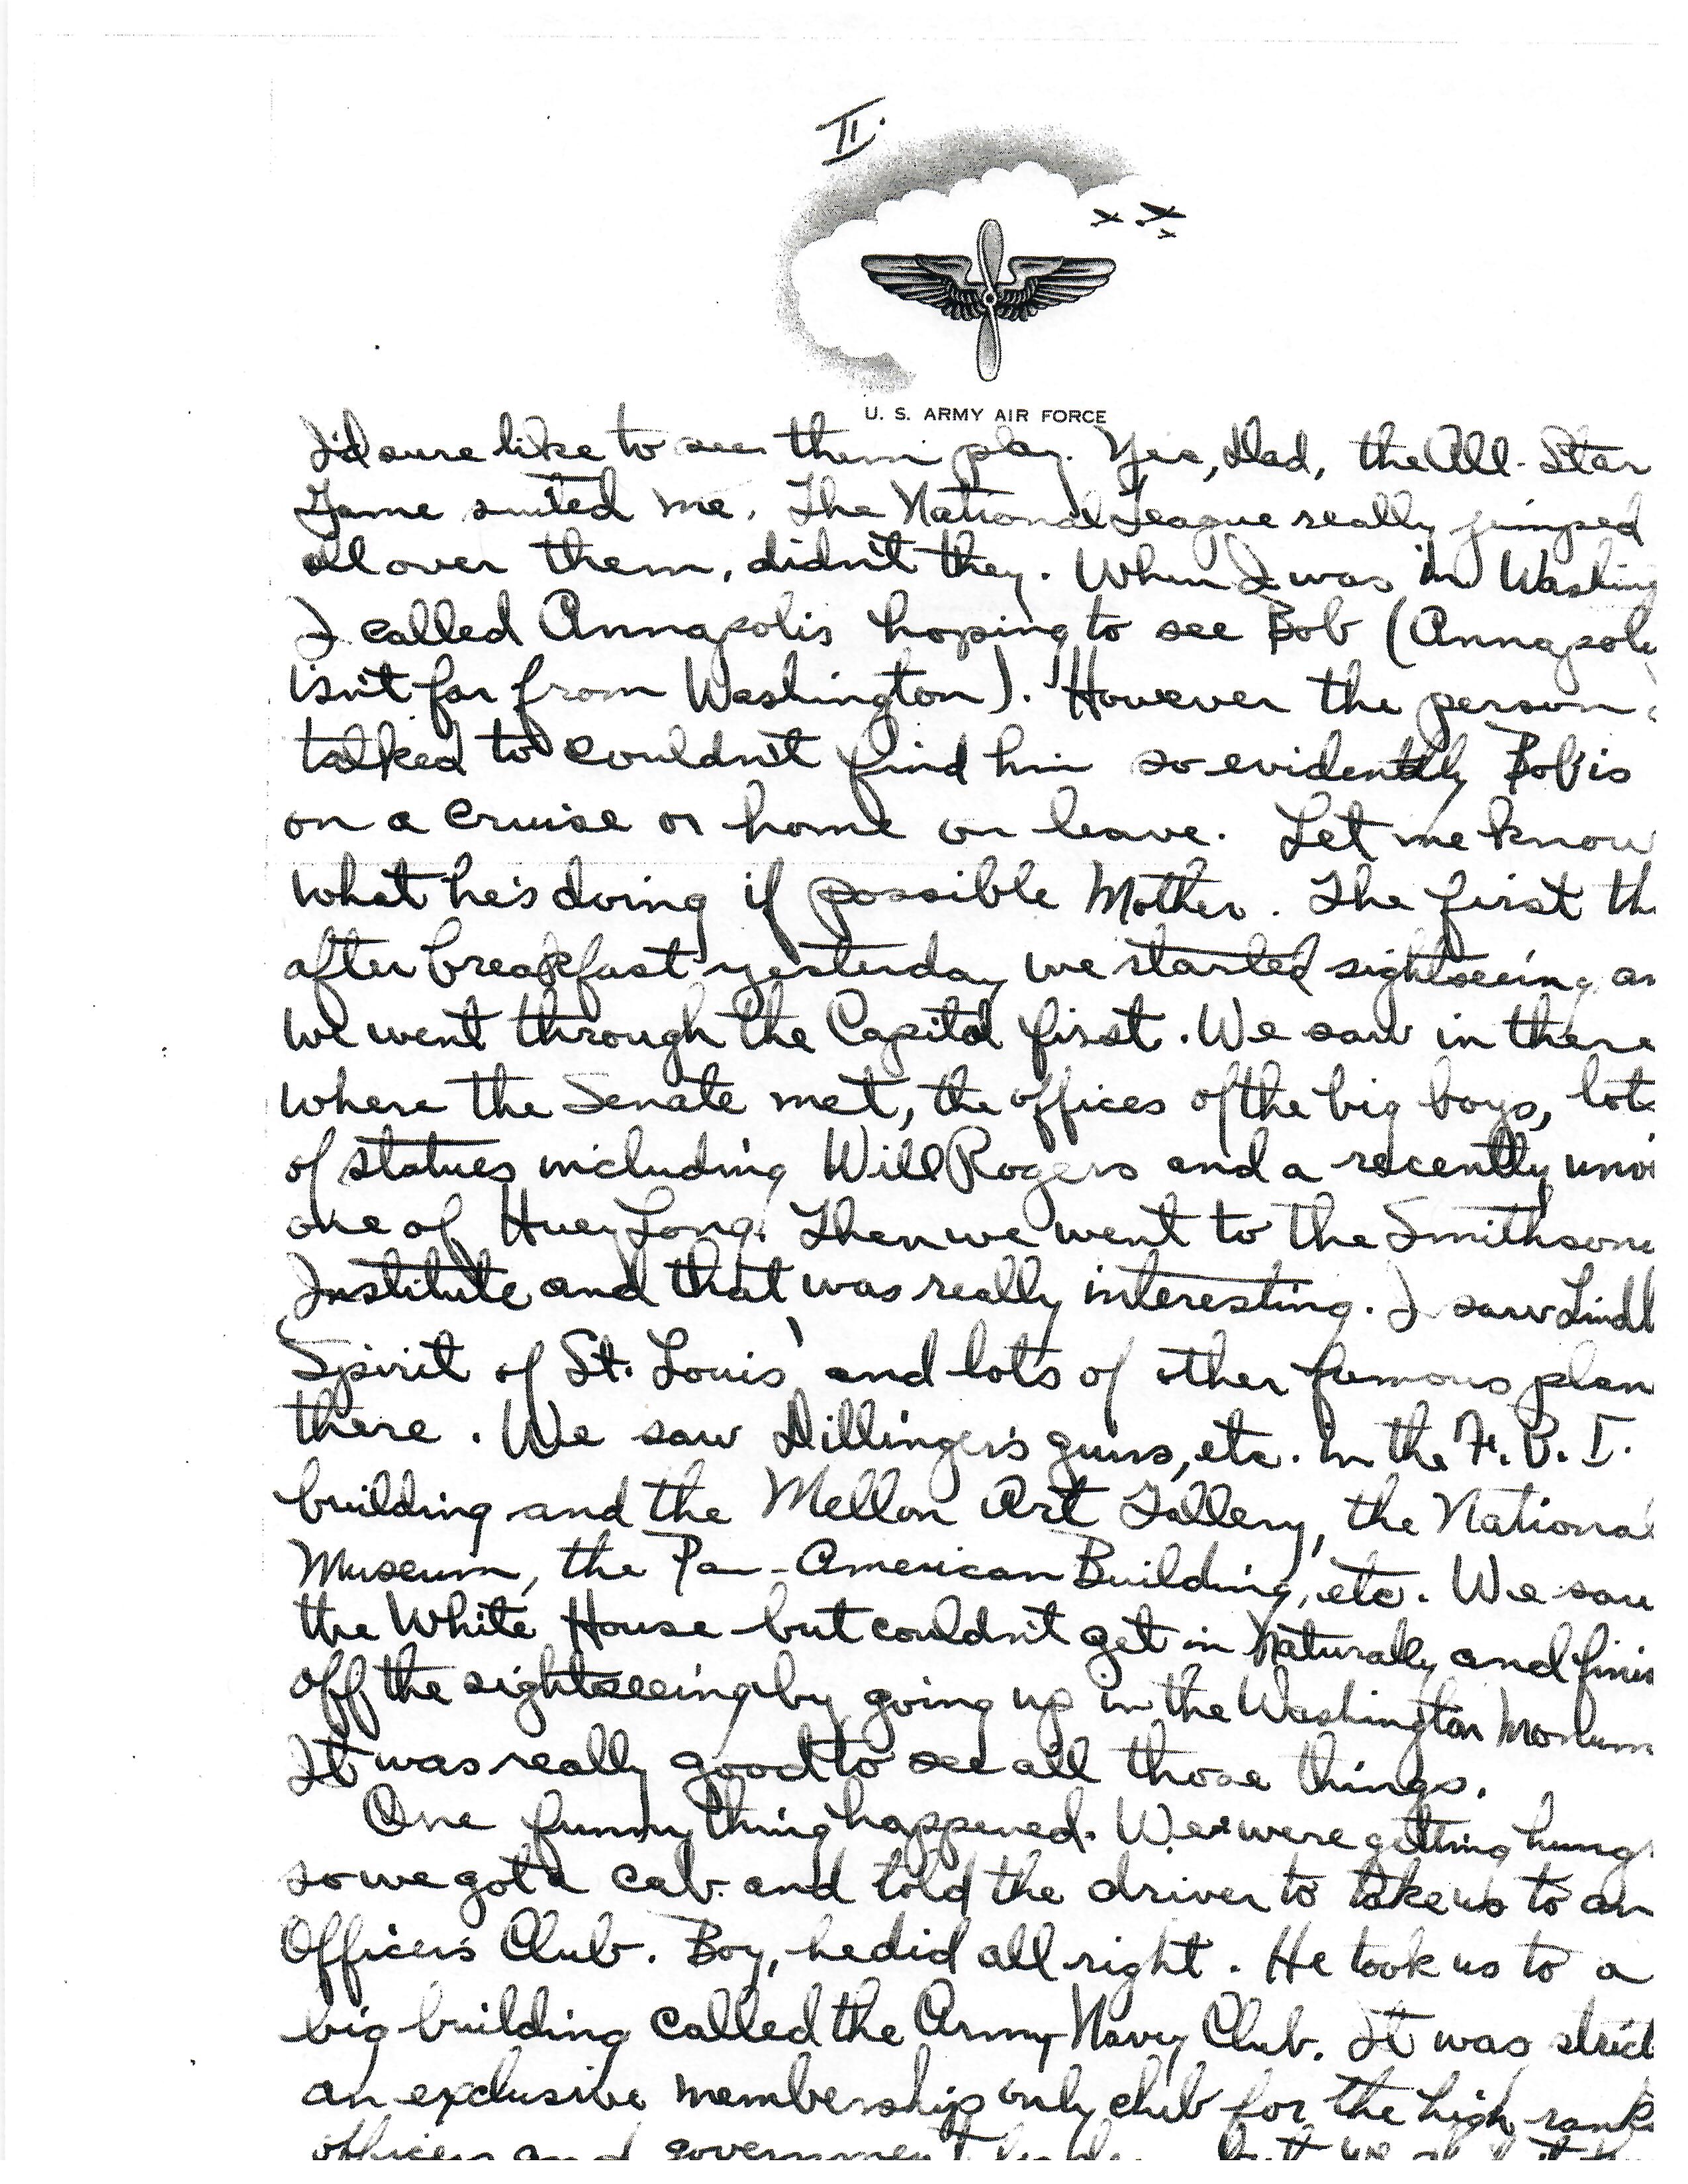 II.
U. S. ARMY AIR FORCE
I'd sure like to see them play. Yes, Dad, the All-Star
Game suited me. The National League really jumped
all over them, didn't they. When I was in Washing
I called Annapolis hoping to see Bob (Annapoli
isn't far from Washington). However the person
talked to couldn't find him so evidently Bob is
on a cruise or home on leave. Let me know
what he's doing if possible Mother. The first th
after breakfast yesterday we started sightseeing an
we went through the Capitol first. We saw in there
where the Senate met, the offices of the big boys, lots
of statues including Will Rogers and a recently unvi
one of Huey Long. Then we went to the Smithsoni
Institute and that was really interesting. I saw Lindb
Spirit of St. Louis' and lots of other famous plan
there. We saw Dillinger's guns, etc. in the F.B.I.
building and the Mellon Art Gallery, the National
Museum, the Pan-American Building, etc. We saw
the White House but couldn't get in naturally and finis
off the sightseeing by going up in the Washington Monum
It was really good to see all those things.
One funny thing happened. We were getting hung
so we got a cab and told the driver to take us to an
Officer's Club. Boy, he did all right. He took us to a
big building called the Army-Navy Club. It was strict
an exclusive membership only club for the high rank
officers and government but we